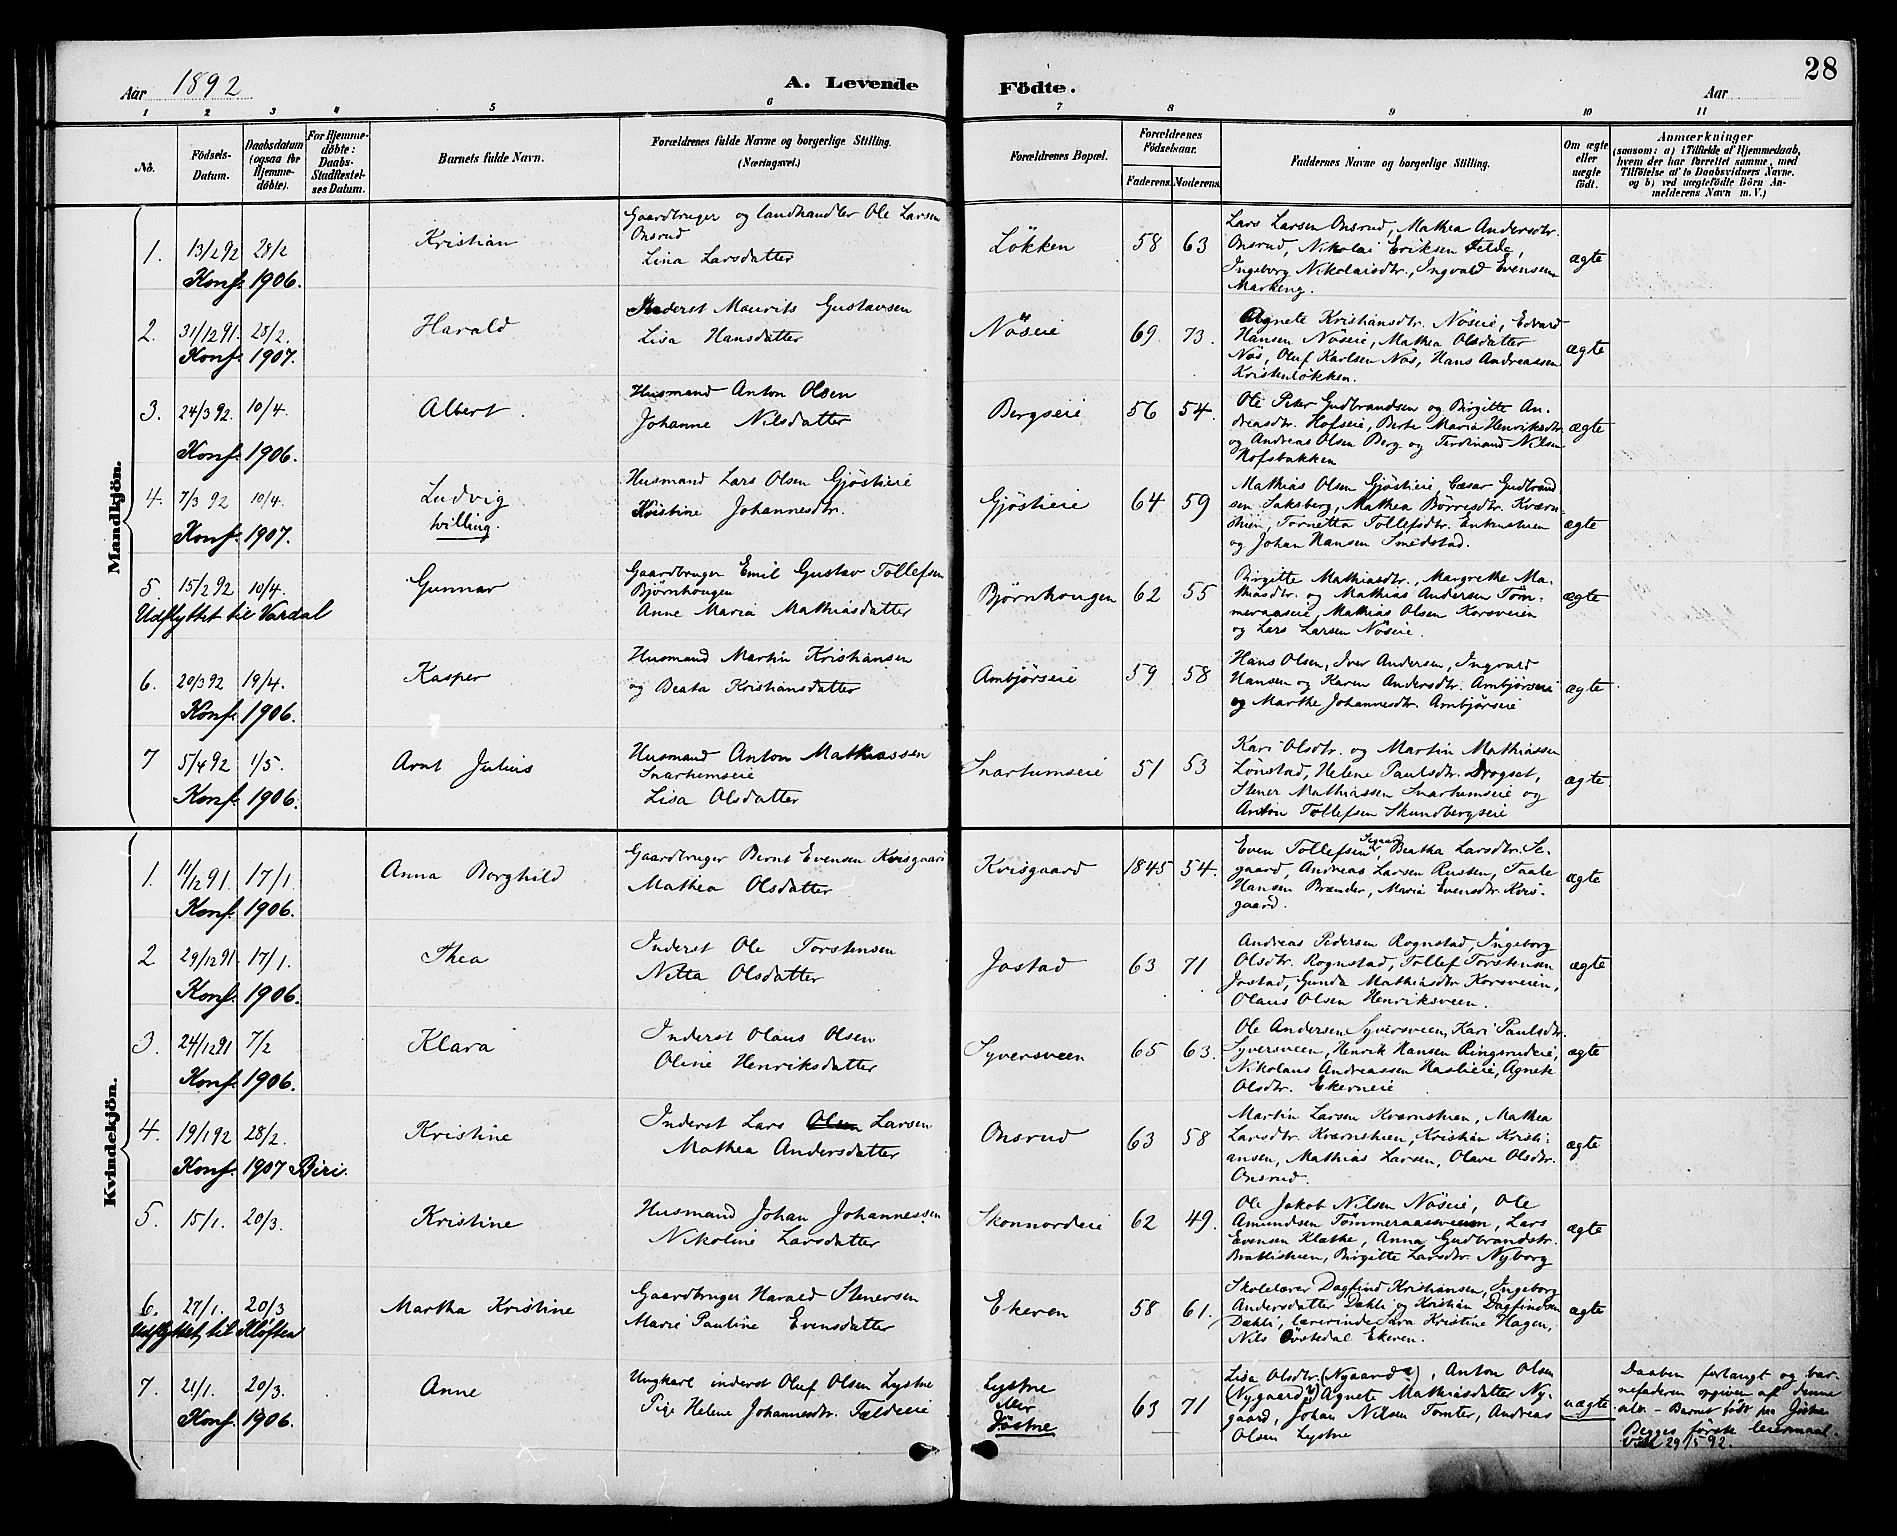 28
Aar 1892
A. Levende Födte.
Aar
1 2 3 4 5 6 7 8 9 10 11
No.
Födsels-Datum.
Daabsdatum (ogsaa for Hjemmedöbte).
For Hjemmedöbte: Daabs-Stadfæstelses Datum.
Barnets fulde Navn.
Forældrenes fulde Navne og borgerlige Stilling. (Næringsvei.)
Forældrenes Bopæl.
Forældrenes Födselsaar.
Faderens. Moderens.
Faddernes Navne og borgerlige Stilling.
Om ægte eller uægte födt.
Anmærkninger
(saasom: a) i Tilfælde af Hjemmedaab, hvem der har forrettet samme, med Tilföielse af to Daabsvidners Navne. og b) ved uægtefödte Börn Anmelderens Navn m. V.)
Mandkjön.
1. 13/2 92 28/2 Kristian
Gaardbruger og landhandler Ole Larsen
Onsrud
Lina Larsdatter
Løkken 58 63
Lars Larsen Onsrud, Mathea Andersdtr.
Onsrud, Nikolai Eriksen Felde,
Ingeborg Nikolaisdtr., Ingvald Evensen
Markeng.
ægte
Konf. 1906.
2. 31/12 91. 28/2. Harald
Inderst Maurits Gustavsen
Lisa Hansdatter
Nöseie 69. 73.
Agnete Kristiansdtr. Nöseie, Edvard
Hansen Nöseie, Mathea Olsdatter
Nös, Oluf Karlsen Nös, Hans Andreassen
Kristenløkken.
ægte
Konf. 1907.
3. 24/3 92. 10/4. Albert.
Husmand Anton Olsen
Johanne Nilsdatter
Bergseie 56 54.
Ole Peter Gudbrandsen og Birgitte An-
dreasdtr. Hofseie, Berte Maria Henriksdtr.
og Andreas Olsen Berg og Ferdinand Nilsen
Hofsbakken
ægte
Konf. 1906.
4. 7/3 92 10/4. Ludvig
tvilling.
Husmand Lars Olsen Gjöstieie
Kristine Johannesdtr.
Gjöstieie 64. 59
Mathias Olsen Gjöstieie, Cæsar Gudbrand
sen Saksberg, Mathea Børresdtr. Kværn-
stuen, Tornetta Tollefsdtr. Enkestuen
og Johan Hansen Smedstad.
ægte
Konf. 1907.
5. 15/2 92 10/4. Gunnar
Gaardbruger Emil Gustav Tollefsen
Bjørnhaugen
Anne Maria Mathiasdatter
Bjørnhougen 62 55
Birgitte Mathiasdtr., Margrethe Ma-
thiasdtr. og Mathias Andersen Töm-
meraaseie, Mathias Olsen Korsveien
og Lars Larsen Nöseie.
ægte
Udflyttet til Vardal
6. 20/3 92 19/4. Kasper
Husmand Martin Kristiansen
og Beata Kristiansdatter
Ambjörseie 59 58
Hans Olsen, Iver Andersen, Ingvald
Hansen og Karen Andersdtr. Ambjörseie
og Marthe Johannesdtr. Ambjörseie
ægte
Konf. 1906.
7 5/4 92 1/5. Arnt Julius
Husmand Anton Mathiassen
Snartumseie
Lisa Olsdatter
Snartumseie 51 53
Kari Olsdtr. og Martin Mathiassen
Lönstad, Helene Paulsdtr. Drogset,
Stener Mathiassen Snartumseie og
Anton Tollefsen Skundbergseie
ægte.
Konf. 1906.
Kvindekjön.
1. 11/12 91. 17/1. Anna Borghild
Gaardbruger Bernt Evensen Kvisgaard
Mathea Olsdatter
Kvisgaard 1845 54.
Even Tollefsen Segaard, Beatha Larsdtr. Se-
gaard, Andreas Larsen Rusten, Taale
Hansen Brænder, Maria Evensdtr. Kvis-
gaard.
ægte
Konf. 1906.
2 29/12 91. 17/1. Thea
Inderst Ole Torstensen
Netta Olsdatter
Jostad 63 71
Andreas Pedersen Rognstad, Ingeborg
Olsdtr. Rognstad, Tollef Torstensen
Jostad, Gunda Mathiasdtr. Korsveien,
Olaus Olsen Henriksveen.
ægte
Konf. 1906.
3. 24/12 91 7/2 Klara
Inderst Olaus Olsen
Oline Henriksdatter
Syversveen 65 63.
Ole Andersen Syversveen, Kari Paulsdtr.
Syversveen, Henrik Hansen Ringsrudeie,
Nikolaus Andreassen Haslieie, Agnete
Olsdtr. Ekerneie
ægte
Konf. 1906.
4. 19/1 92 28/2. Kristine
Inderst Lars Olsen Larsen
Mathea Andersdatter
Onsrud 63 58
Martin Larsen Kværnstuen, Mathea
Larsdtr. Kværnstuen, Kristian Kristi-
ansen, Mathias Larsen, Olave Olsdtr.
Onsrud.
ægte
Konf. 1907 Biri.
5. 15/1. 20/3. Kristine
Husmand Johan Johannessen
Nikoline Larsdatter
Skonnordeie 62 49.
Ole Jakob Nilsen Nöseie, Ole
Amundsen Tömmeraasveen, Lars
Evensen Klæthe, Anna Gudbrandstr.
Brattistuen, Birgitte Larsdtr. Nyborg
ægte
6. 27/1. 20/3 Martha Kristine
Gaardbruger Harald Stenersen
Marie Pauline Evensdatter
Ekeren 58 61.
Skolelærer Dagfind Kristiansen, Ingeborg
Andersdatter Dæhli og Kristian Dagfindsen
Dæhli, lærerinde Sara Kristine Hagen,
Nils Övstedal Ekeren.
ægte
Udflyttet til Kløften
7. 21/1. 20/3. Anne
Ungkarl inderst Oluf Olsen Lystne
Pige Helene Johannesdtr. Fældeeie
Lystne
Östne
63 71
Lisa Olsdtr. (Nygaard), Anton Olsen
(Nygaard) Agnete Mathiasdatter Ny-
gaard, Johan Nilsen Tomter, Andreas
Olsen Lystne
uægte
Daaben forlangt og bar-
nefaderen opgiven af denne
selv. - Barnet født paa
Begges første leiermaal.
29/5 92.
Konf. 1906.